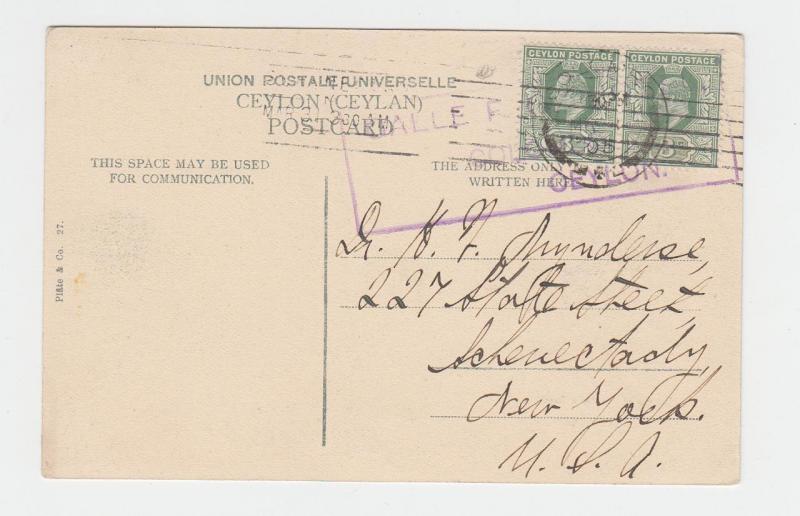 CEYLON POSTAGE
CEYLON POSTAGE
UNION POSTALE UNIVERSELLE
CEYLON (CEYLAN)
POSTCARD
GALLE F
CEYLON.
THIS SPACE MAY BE USED
FOR COMMUNICATION.
THE ADDRESS ONLY
WRITTEN HERE
Plâte & Co. 27.
Dr. H. F.
227 State Street,
Schenectady,
New York.
U. S. A.